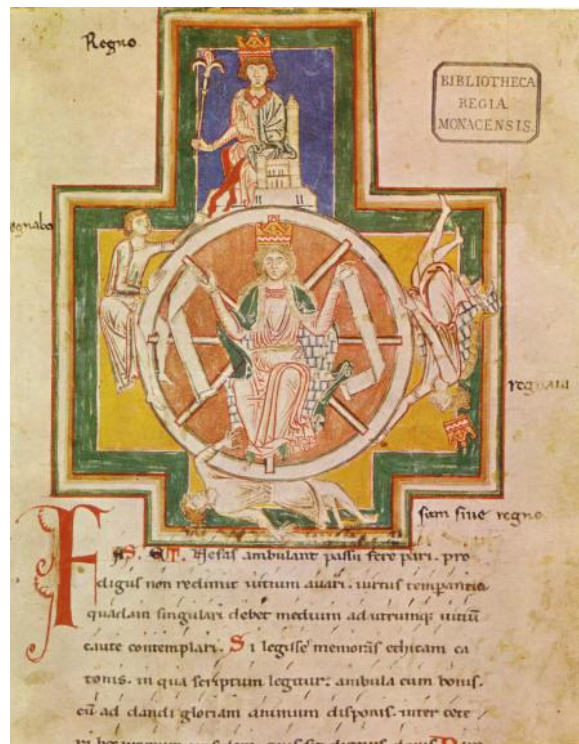 Regno
BIBLIOTHECA
REGIA
MONACENSIS.
egnabo
regnaui
sum sine regno
FAS. ET. Nefas ambulant passu fere pari. pro
digus non redimit uitium auari. uirtus temperantia
quadam singulari debet medium ad utrumq; uitiū
caute contemplari. Si legisse memoras ethicam ca
tonis. in qua scriptum legitur: ambula cum bonis.
cū ad dandi gloriam animum disponis. inter cete